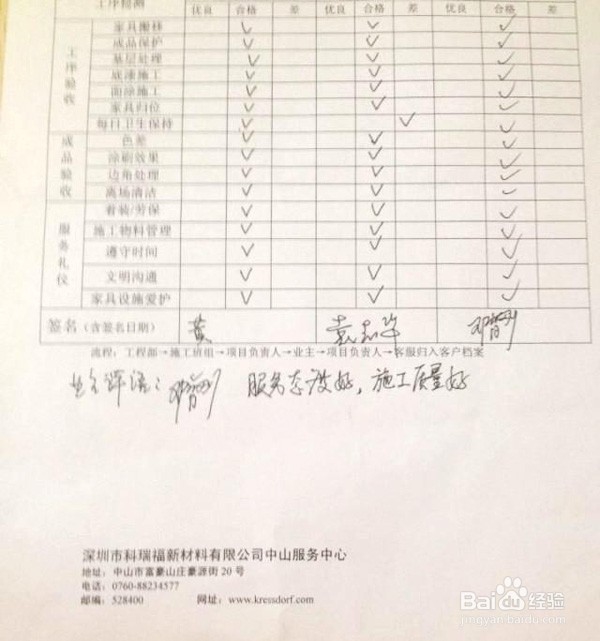 工序检测 优良 合格 差 优良 合格 差 优良 合格 差
工序验收
家具搬移 ✓ ✓ ✓
成品保护 ✓ ✓ ✓
基层处理 ✓ ✓ ✓
底漆施工 ✓ ✓ ✓
面涂施工 ✓ ✓ ✓
家具归位 ✓ ✓ ✓
每日卫生保持 ✓ ✓ ✓
成品验收
色差 ✓ ✓ ✓
涂刷效果 ✓ ✓ ✓
边角处理 ✓ ✓ ✓
离场清洁 ✓ ✓ ✓
服务礼仪
着装/劳保 ✓ ✓ ✓
施工物料管理 ✓ ✓ ✓
遵守时间 ✓ ✓ ✓
文明沟通 ✓ ✓ ✓
家具设施爱护 ✓ ✓ ✓
签名(含签名日期) 黄 袁志华
流程:工程部→施工班组→项目负责人→业主→项目负责人→客服归入客户档案
业主评语: 服务态度好,施工质量好
深圳市科瑞福新材料有限公司中山服务中心
地址:中山市富豪山庄豪源街20号
电话:0760-88234577
邮编:528400 网址:www.kressdorf.com
Baidu经验